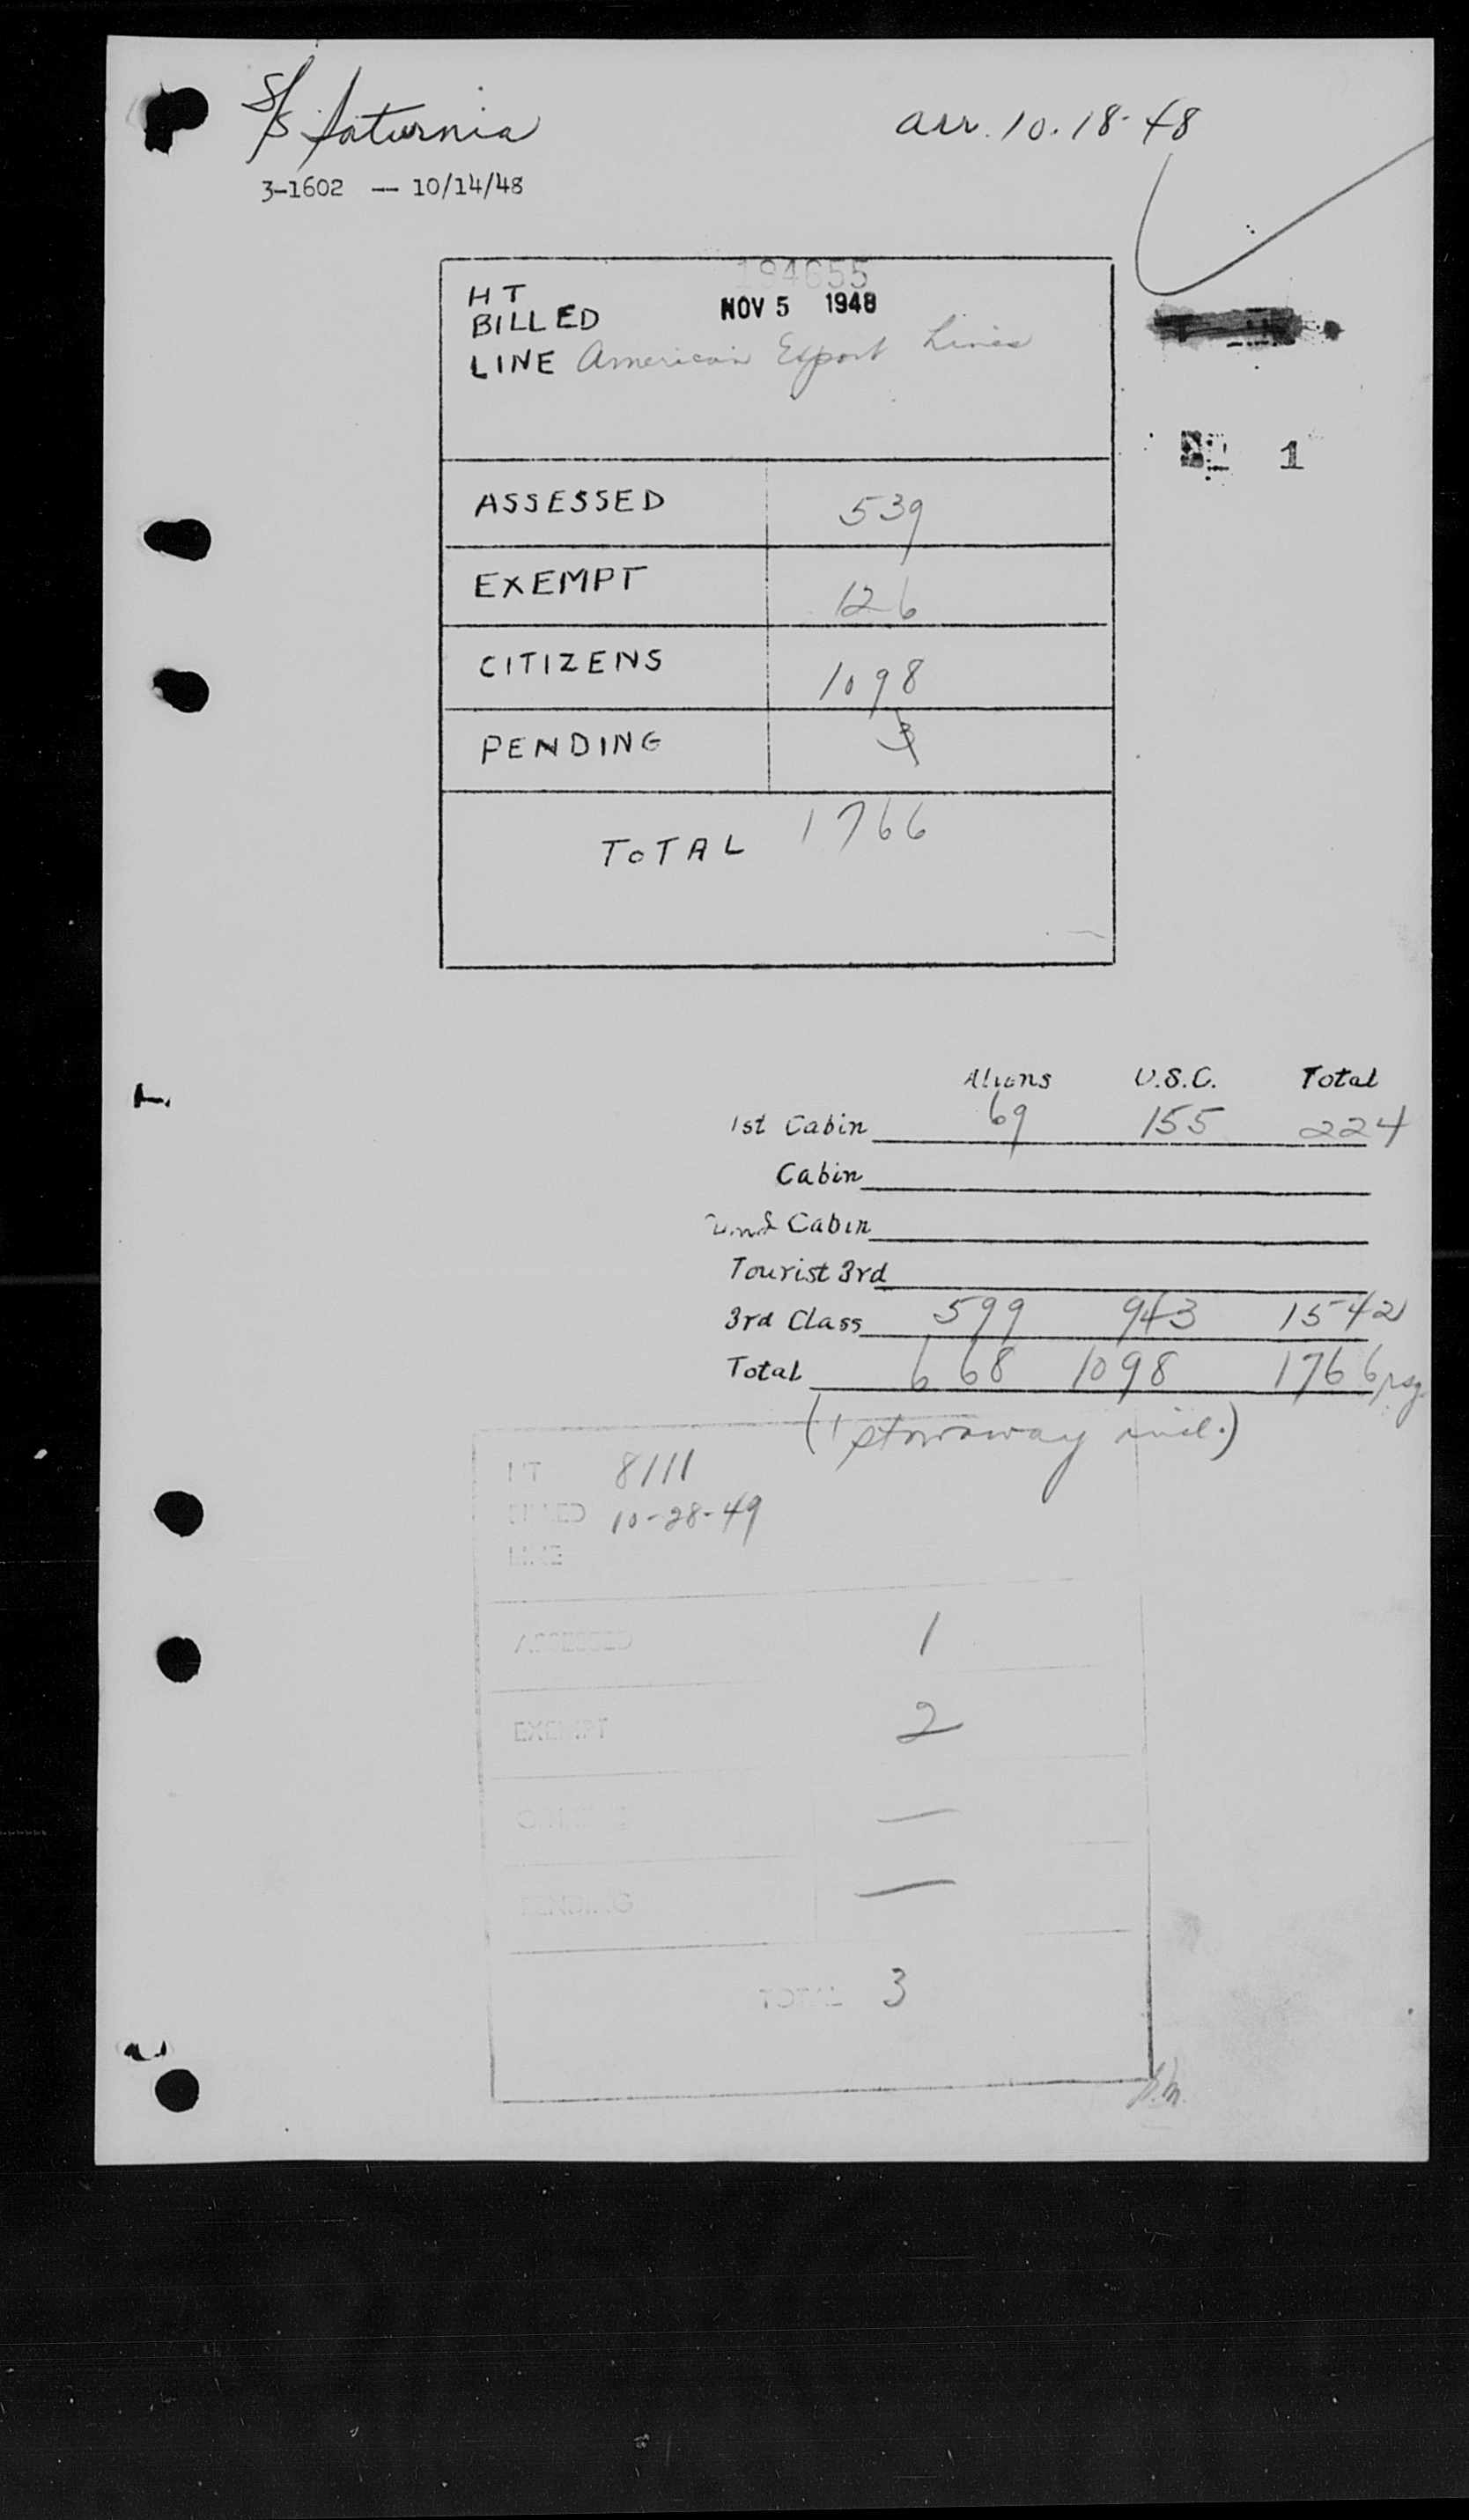 S/S Saturnia
arr. 10.18-48
3-1602 — 10/14/48
194655
HT
BILLED NOV 5 1948
LINE American Export Lines
1
ASSESSED 539
EXEMPT 126
CITIZENS 1098
PENDING 3
TOTAL 1766
Aliens U.S.C. Total
1st Cabin 69 155 224
Cabin
Cabin
Tourist 3rd
3rd Class 599 943 1542
Total 668 1098 1766 psg
(1 stowaway incl.)
HT 8111
BILLED 10-28-49
LINE
ASSESSED 1
EXEMPT 2
CITIZENS —
PENDING —
TOTAL 3